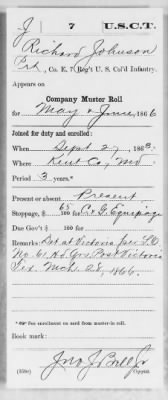 J 7 U.S.C.T.
Richard Johnson
Pvt, Co. E, 7 Reg't U. S. Col'd Infantry.
Appears on
Company Muster Roll
for May & June, 1866
Joined for duty and enrolled:
When Sept 27, 1863.
Where Kent Co, Md
Period 3 years.*
Present or absent Present
Stoppage, $ 65/100 for C & G Equipage
Due Gov't $ 100 for
Remarks: Det at Victoria per S.O.
No. 61, Hd Qrs Post Victoria
Tex. Mch. 28, 1866.
Book mark:
Jno J Bell Jr
(358c) Copyist.